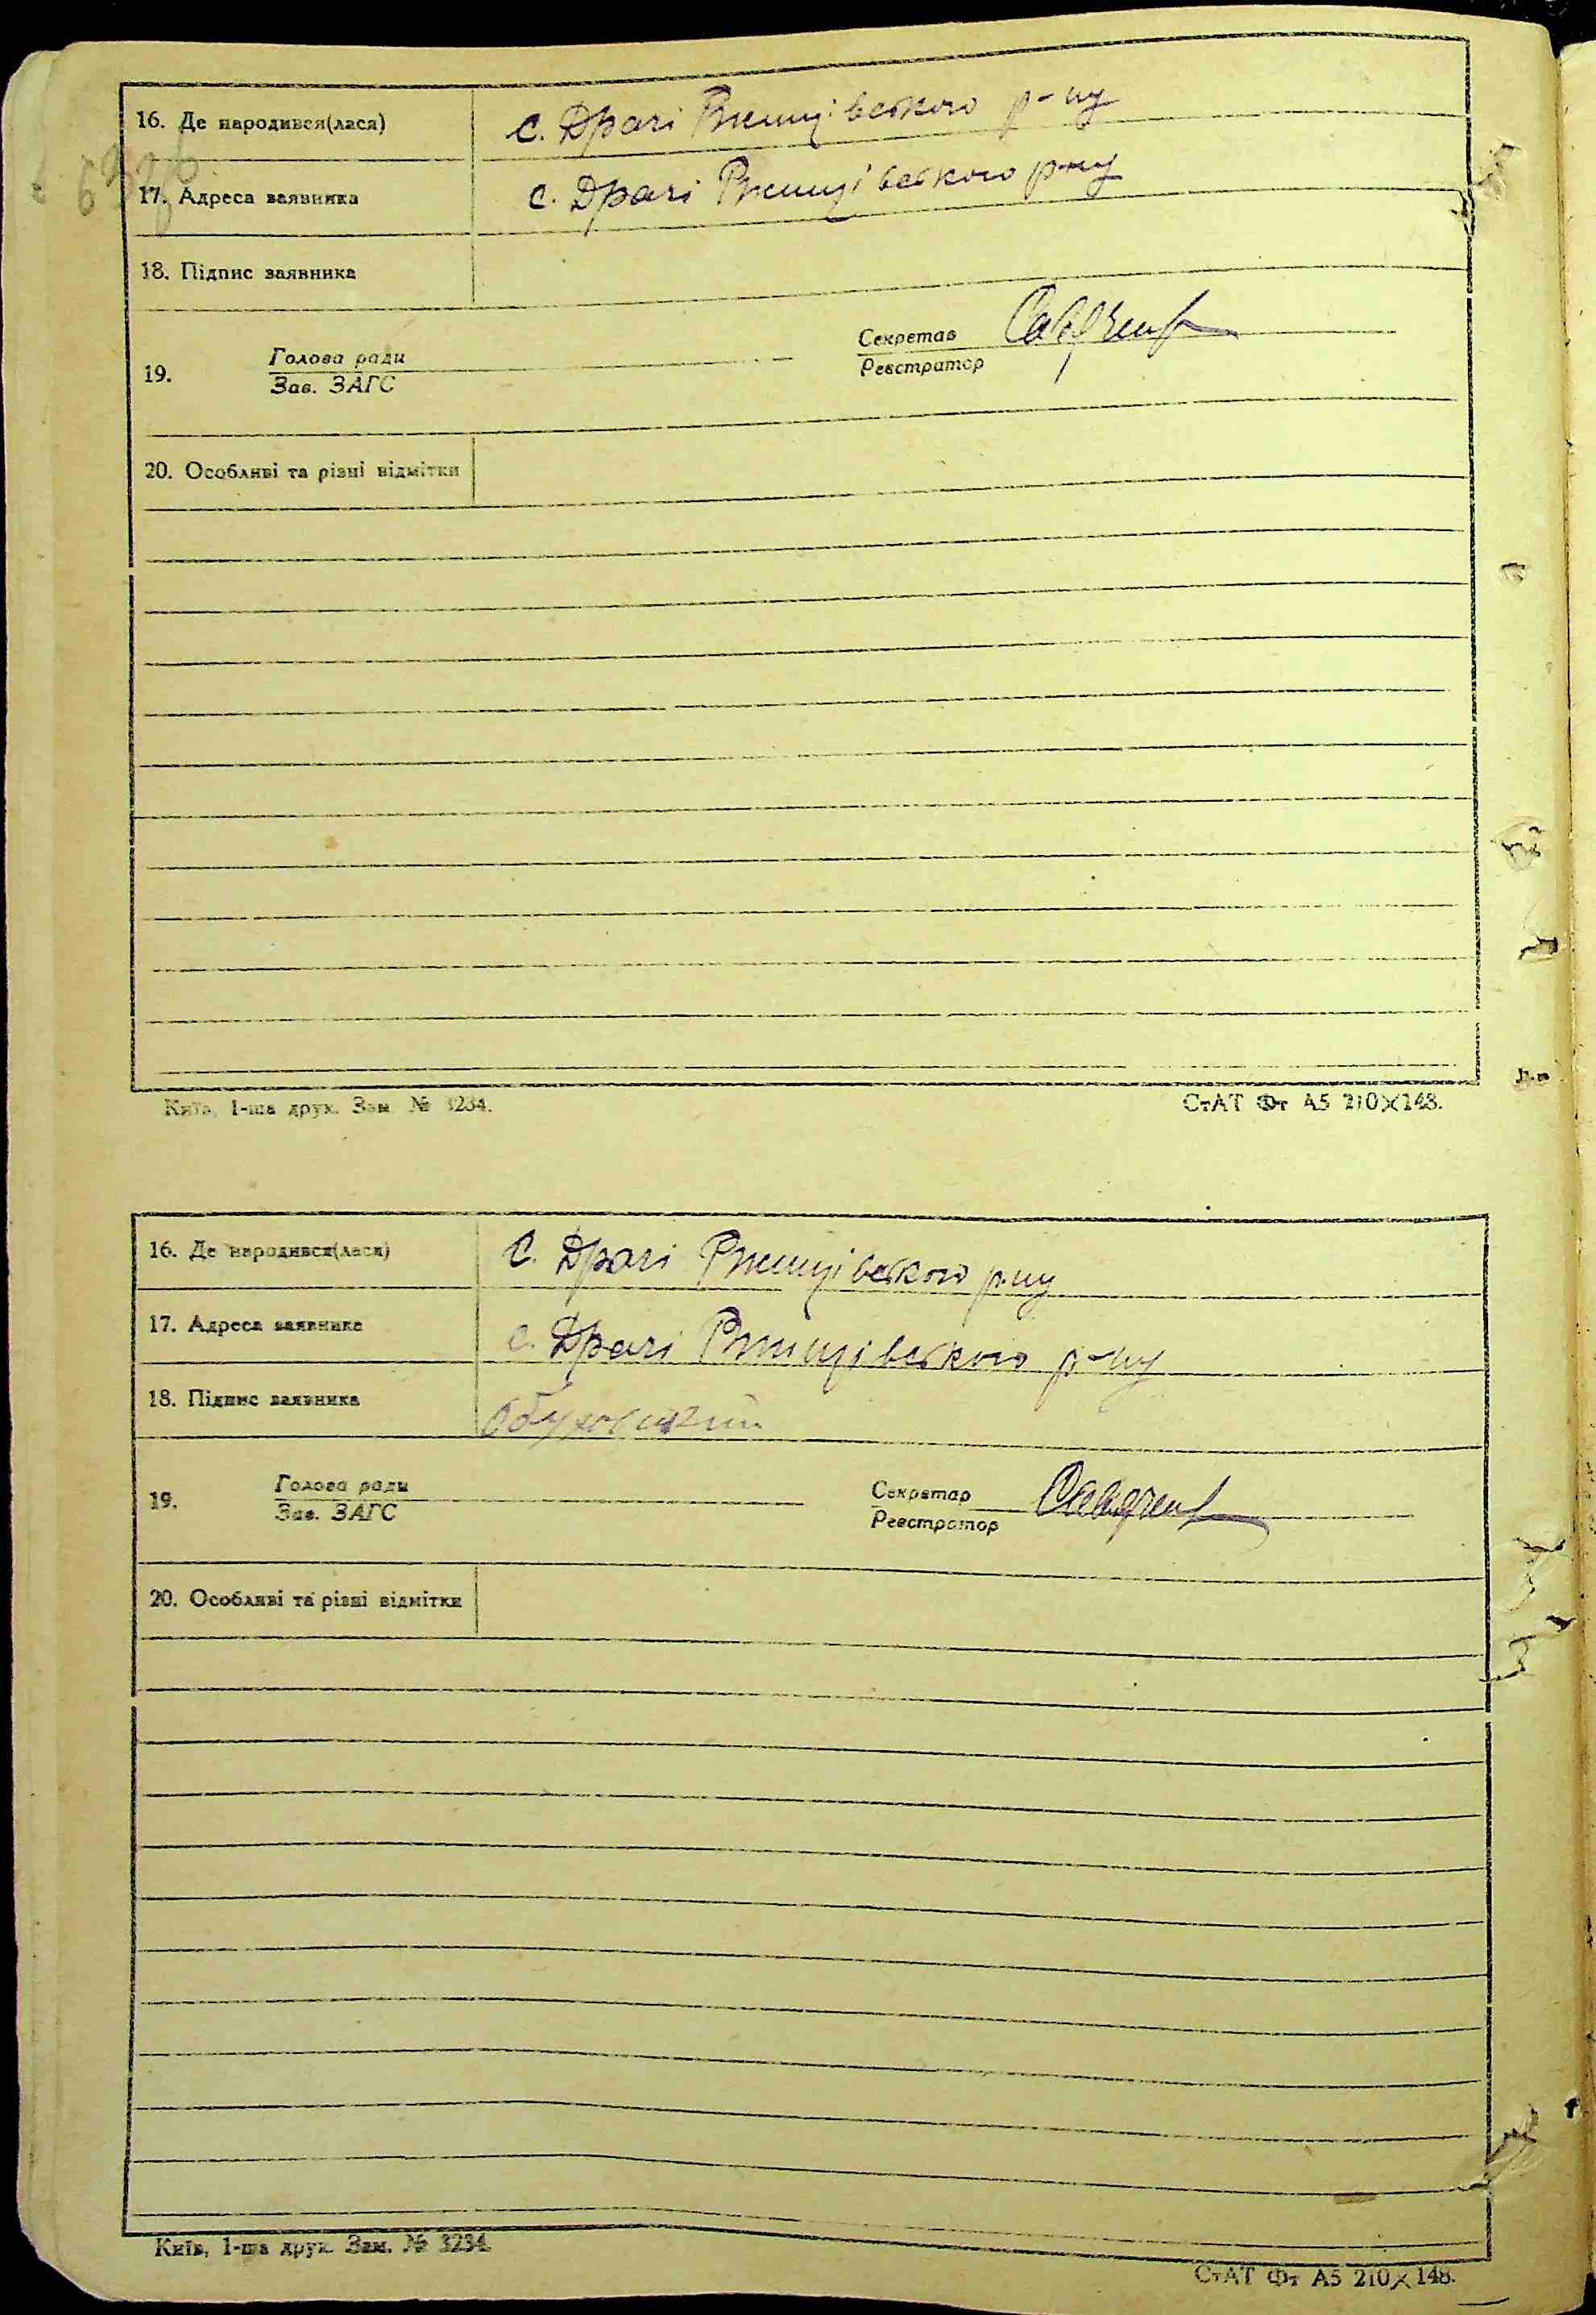 16. Де народився(лася) с. Драчі Ржищівського р-ну
17. Адреса заявника с. Драчі Ржищівського р-ну
18. Підпис заявника
Голова ради Секретар
19.
Зав. ЗАГС Реєстратор
20. Особливі та різні відмітки
Київ, 1-ша друк. Зам. № 3234. СтАТ Фт А5 210×148.
16. Де народився(лася) С. Драчі Ржищівського р-ну
17. Адреса заявника с. Драчі Ржищівського р-ну
18. Підпис заявника Обуховський
Голова ради Секретар
19.
Зав. ЗАГС Реєстратор
20. Особливі та різні відмітки
Київ, 1-ша друк. Зам. № 3234. СтАТ Фт А5 210×148.